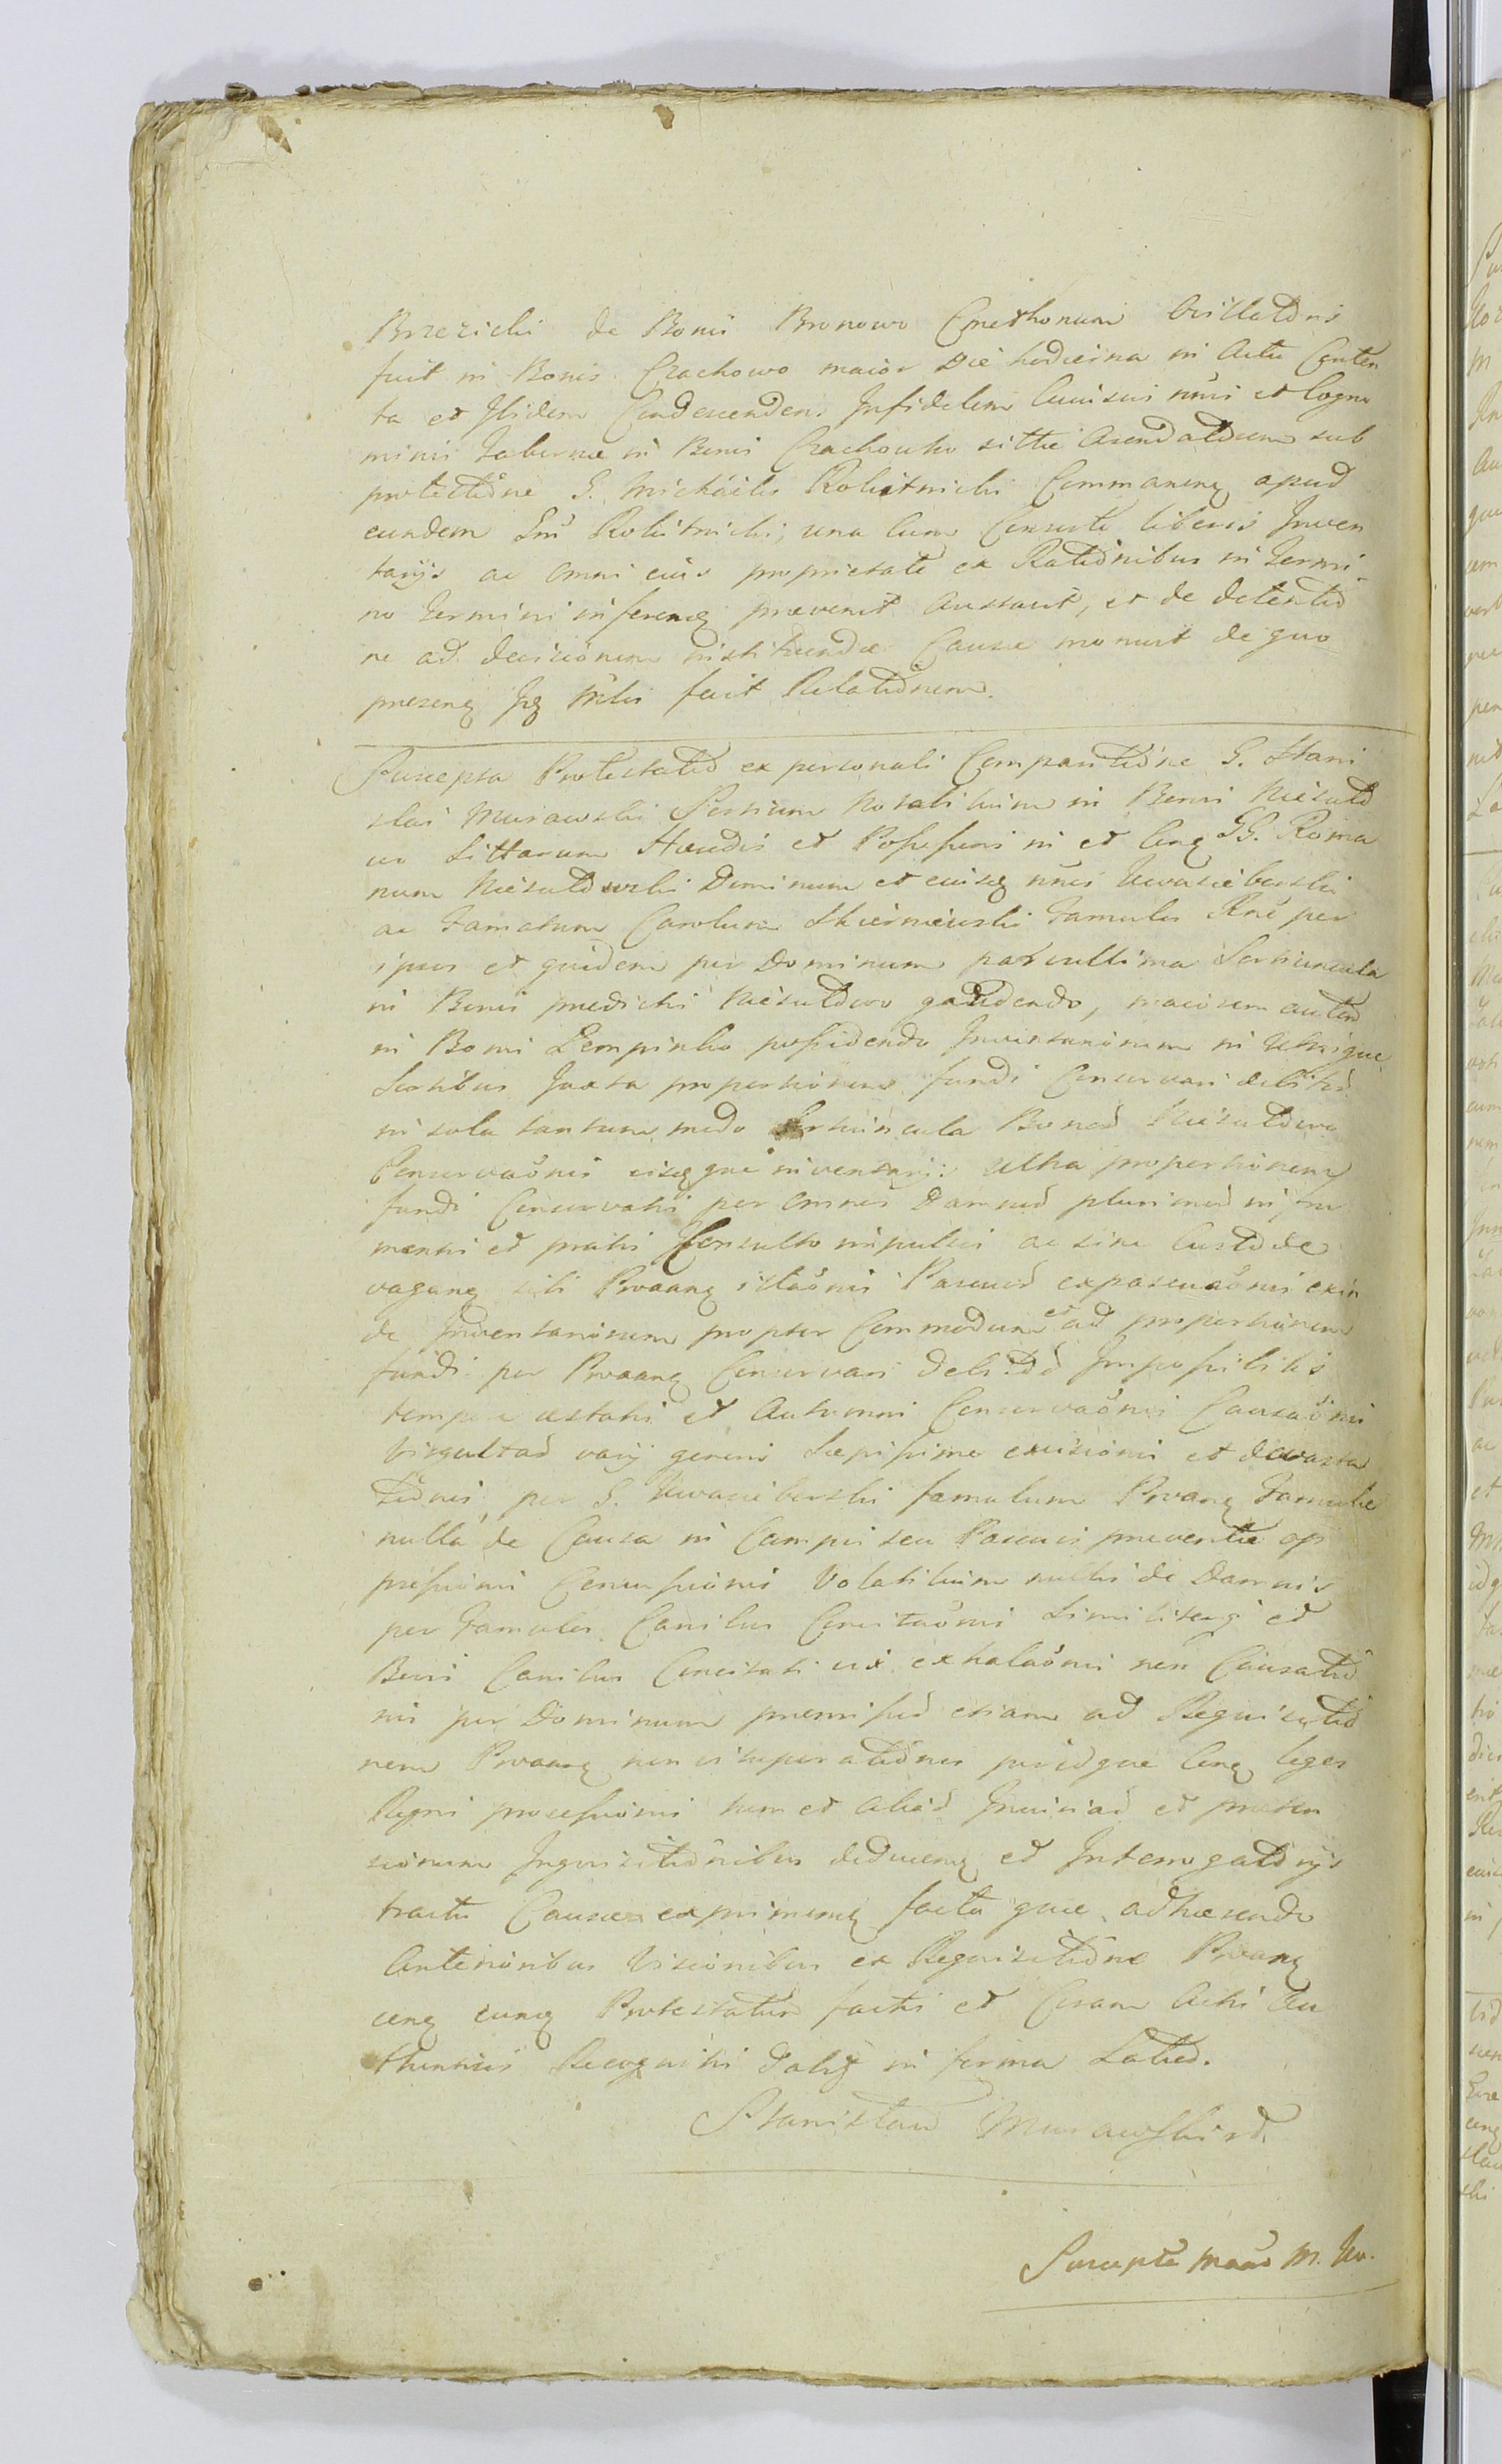 Brzezicki de Bonis Bronowo Cmethonum
fuit in Bonis Crachowo maior Die hodierna in Actu Conten
ta et Ibidem Condescendens Infidelem Cuiusvis nnis et Cogno
minis Tabernæ in Bonis Crachowko sittæ Arendatorem sub
protectione G. Michaelis Rokitnicki Commanenq apud
eundem Gm̄ Rokitnicki, una Cum Consorte liberis Inven
tarijs ac omni eius proprietate ex Rationibus in Termi
no Termini inferenq prævenit Arestavit, et de detentio
ne ad decisionem instituendæ Causæ monuit de quo
presens Inq Mtlis fecit Relationem.
Suscepta Protestatio ex personali Comparitione G. Stani
slai Murawski Sortium Nobilium in Bonis Niesułto
wo Sittarum Hæredis et Possessoris in et Cnq GG. Roma
num Niesułtowski Dominum et eiusq nnis Kwasieborski
ac Famatum Carolum Skierniewski Famulos Rne per
ipsos et quidem per Dominum parvullima Sortiuncula
in Bonis predictis Niesułtowo gaudendo, maiorem autem
in Bonis Lempinko possidendo Inventariorum in Utrisque
Sortibus Juxta proportionem fundi Conservari debitis
in sola tantum modo Sortiuncula Bonor Niesułtowo
Conservaonis eisqque inventarij: ultra proportionem
fundi Conservatis per omnes Damnor plurimor in fru
mentis et pratis Consulto impulsis ac sine Custode
vaganq sibi Proaanq illaonis Pascuor expascuaonis exin
de Inventariorum propter Commodum et ad proportionem
fundi per Proaanq Conservari debitor Impossibilis
tempore æstatis et Autumni Conservaonis Causaonis
Virgultor varij generis Sæpissime excisionis et devasta
tionis, per G. Kwasieborski famulum Proanq Famulæ
nulla de Causa in Campis seu Pascuis preventæ op
pressionis Concussionis Volatilium nullis de Damnis
per Famulos Canibus Concitaonis Similiterq et
Bovis Canibus Concitati vix exhalaonis non Causatio
nis per Dominum premissor etiam ad Requisitio
nem Proaanq non vituperationis perindque Cnq leges
Regni processionis tum et aliar Iniuriar et preten
sionum Inquisitionibus deducenq et Interrogatorijs
tractu Causæ exprimenq facta quæ adhærendo
Anterioribus Visionibus ex Requisitione Proanq
cnq eunq Protestatum factis et Coram Actis Au
thenticis Recognitis Dalsq in forma Latior.
Stanisław Murawski
Suscepta